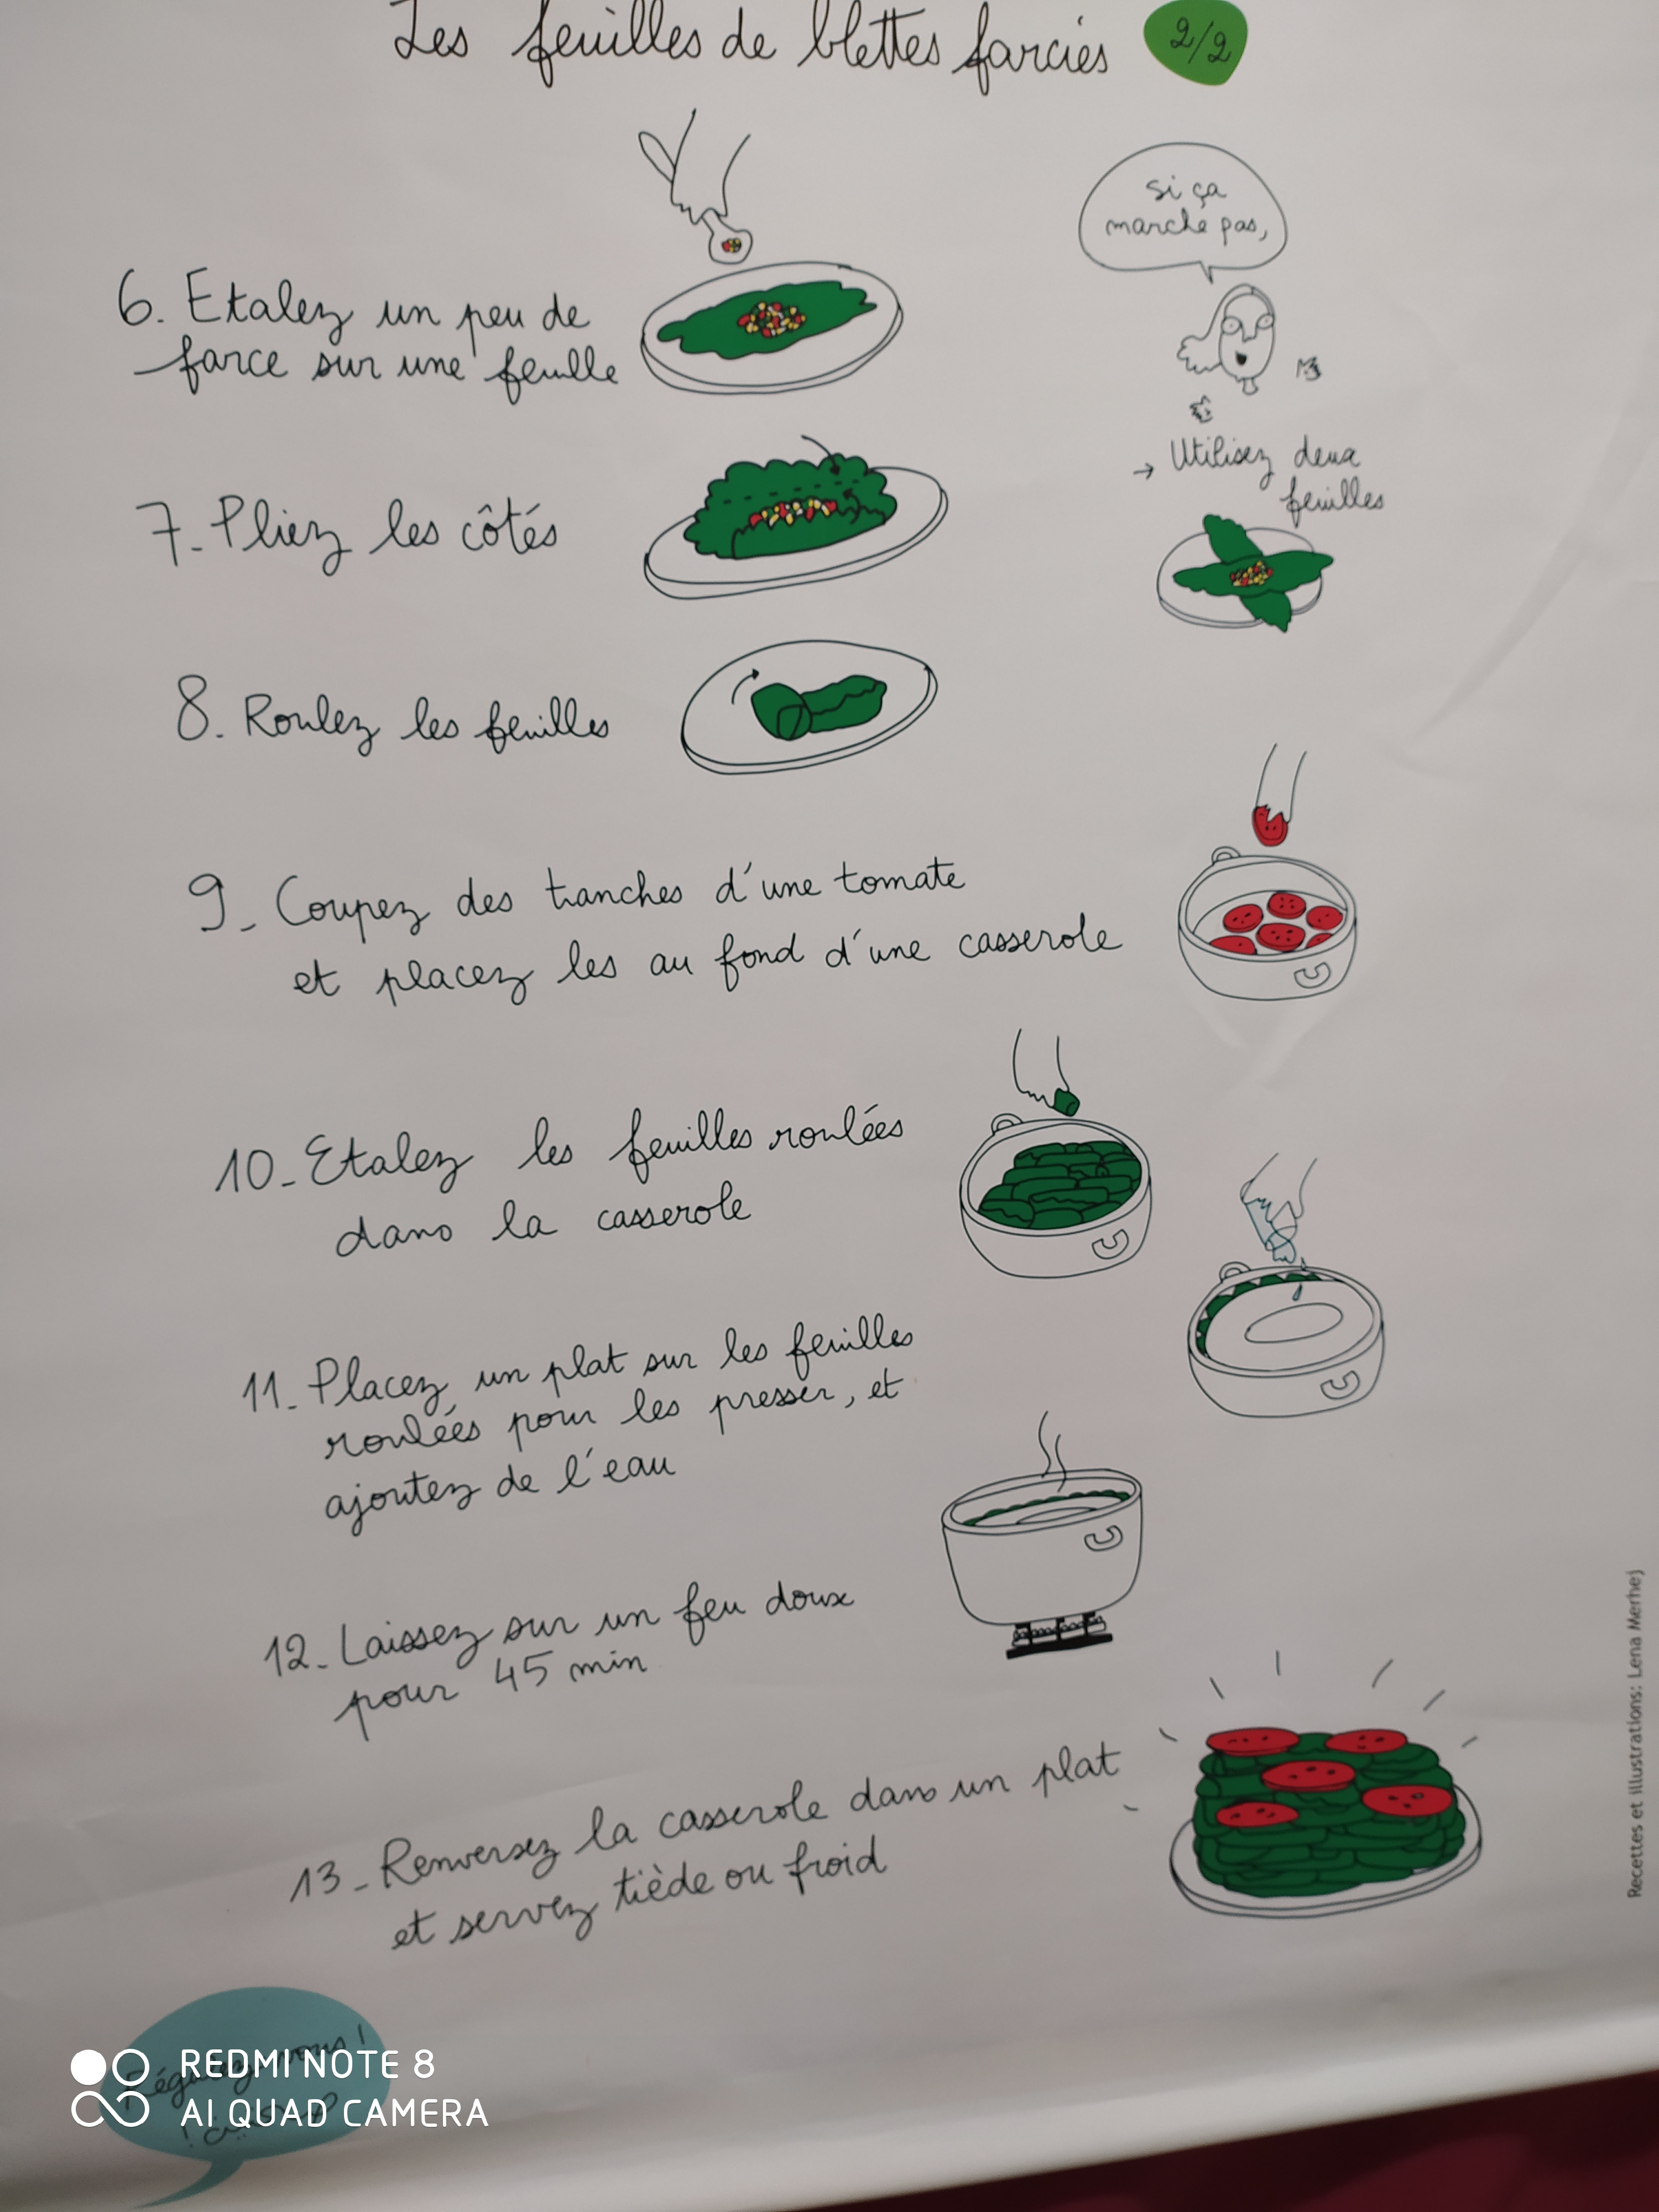 Les feuilles de blettes farcies 2/2
si ça
marche pas,
6. Etalez un peu de
farce sur une feuille
→ Utilisez deux
feuilles
7-Pliez les côtés
8. Roulez les feuilles
9_ Coupez des tranches d'une tomate
et placez les au fond d'une casserole
10_ Etalez les feuilles roulées
dans la casserole
11_ Placez un plat sur les feuilles
roulées pour les presser, et
ajoutez de l'eau
12_ Laissez sur un feu doux
pour 45 min
13_ Renversez la casserole dans un plat
et servez tiède ou froid
Recettes et illustrations: Lena Merhej
Régalez-vous !
REDMI NOTE 8
AI QUAD CAMERA